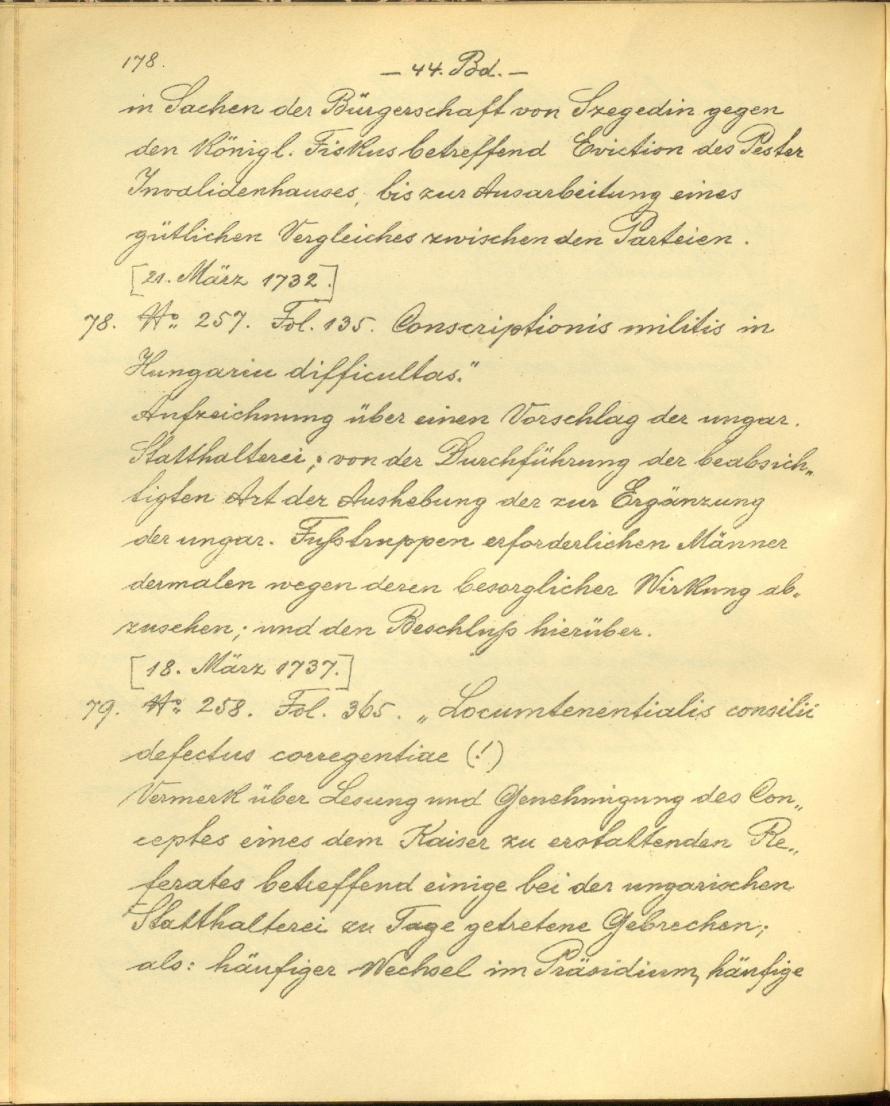 178.
— 44. Bd. —
in Sachen der Bürgerschaft von Szegedin gegen
den Königl. Fiskus betreffend Eviction des Pester
Invalidenhauses, bis zur Ausarbeitung eines
gütlichen Vergleiches zwischen den Parteien.
[21. März 1732.]
78. No. 257. Fol. 135. Conscriptionis militis in
Hungaria difficultas."
Aufzeichnung über einen Vorschlag der ungar.
Statthalterei; von der Durchführung der beabsich„
tigten Art der Aushebung der zur Ergänzung
der ungar. Fußtruppen erforderlichen Männer
dermalen wegen deren besorglicher Wirkung ab„
zusehen; und den Beschluß hierüber.
[18. März 1737.]
79. No. 258. Fol. 365. „Locumtenentialis consilii
defectus corregentiae (!)
Vermerk über Lesung und Genehmigung des Con„
ceptes eines dem Kaiser zu erstattenden Re„
ferates betreffend einige bei der ungarischen
Statthalterei zu Tage getretene Gebrechen;
als: häufiger Wechsel im Präsidium, häufige